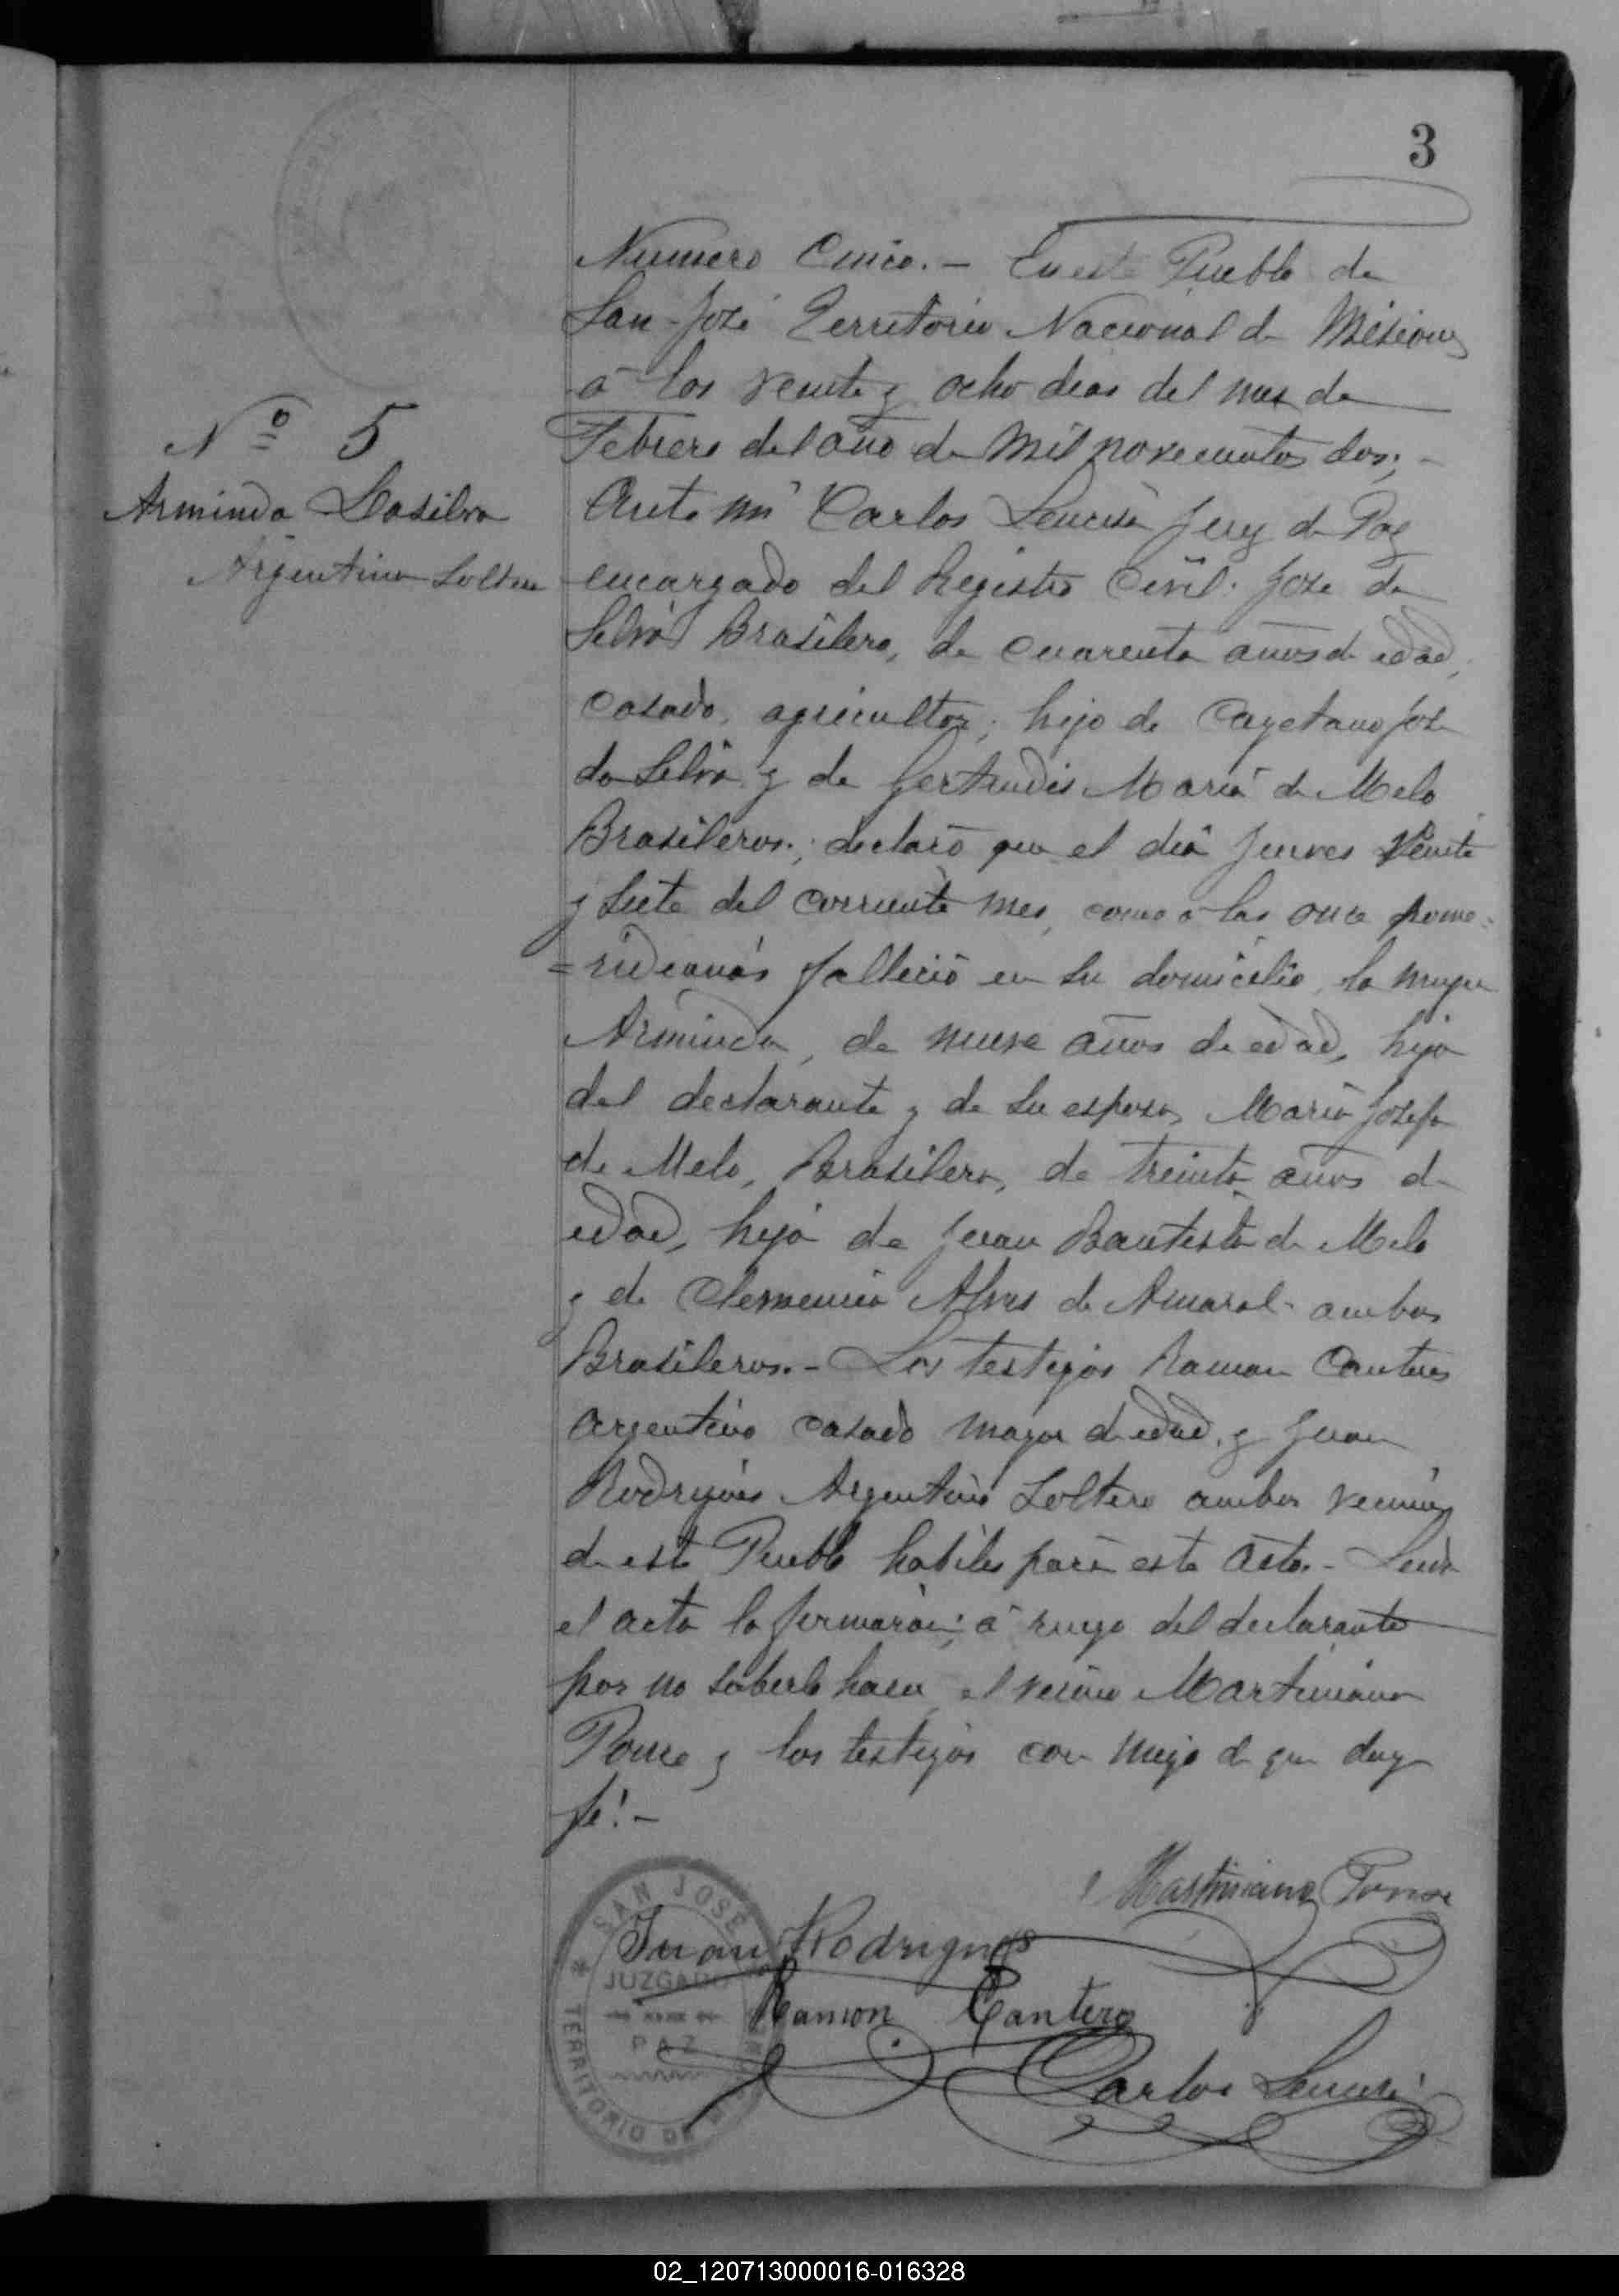 3
Numero Cinco.- En este Pueblo de
San José Territorio Nacional de Misiones
á los veinte y ocho dias del mes de
Febrero del año de mil novecientos dos;-
Nº 5
Arminda Dasilva
Argentina Soltera
Ante mi Carlos Juez de Paz
encargado del Registro Civil: José da
Silva Brasilero, de cuarenta años de edad,
casado, agricultor; hijo de Cayetano José
da Silva y de Gertrudis Maria de Melo
Brasileros; declaró que el dia Jueves veinte
y siete del corriente mes, como a las once pome-
=ridianas falleció en su domicilio, la mujer
Arminda, de nueve años de edad, hija
del declarante y de su esposa, Maria Josefa
de Melo, Brasilera, de treinta años de
edad, hija de Juan Bautista de Melo
y de Clemencia Alves de Amaral ambos
Brasileros.- Los testigos Ramon Cantero
Argentino casado mayor de edad, y Juan
Rodrigues Argentino Soltero ambos vecinos
de este Pueblo habiles para este acto.- Leida
el acta la firmaron; á ruego del declarante
por no saberlo hacer el vecino Martiniano
Ponce y los testigos con migo de que doy
fé!-
Martiniano Ponce
Juan Rodrigues
Ramon Cantero
Carlos
SAN JOSÉ
JUZGADO
DE
PAZ
TERRITORIO DE MISIONES
02_120713000016-016328